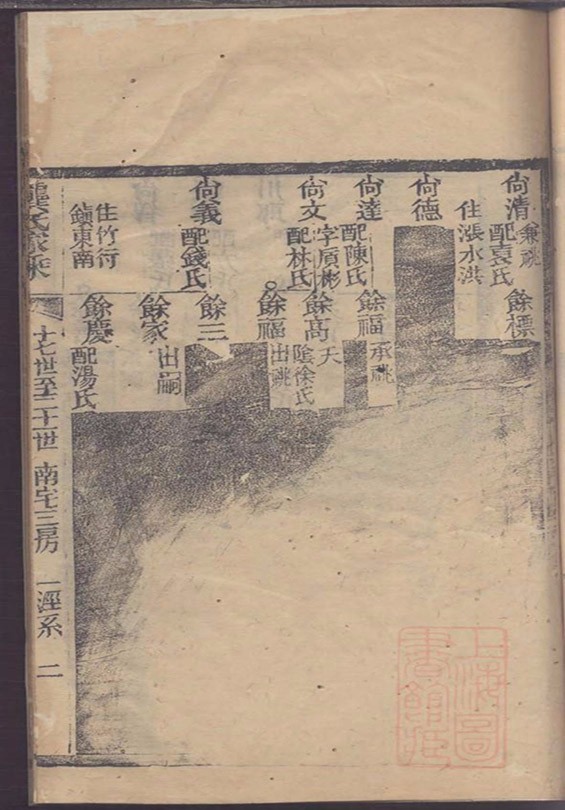 尙清 兼祧
配袁氏
住漲水洪
餘標
尙德
尙達
配陳氏
餘福 承祧
尙文
字原彬
配林氏
餘高 夭
陰徐氏
餘福 出祧
尙義
配錢氏
住竹行
鎮東南
餘三
餘家 出嗣
餘慶
配湯氏
龔氏家乘
十七世至二十世 南宅三房 一涇系 二
上海圖
書館藏